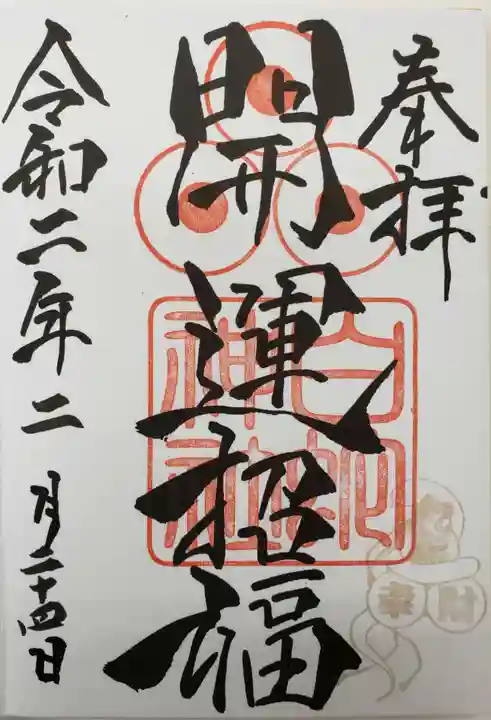 奉拝
開運招福
白蛇神社
令和二年二月二十四日
来財